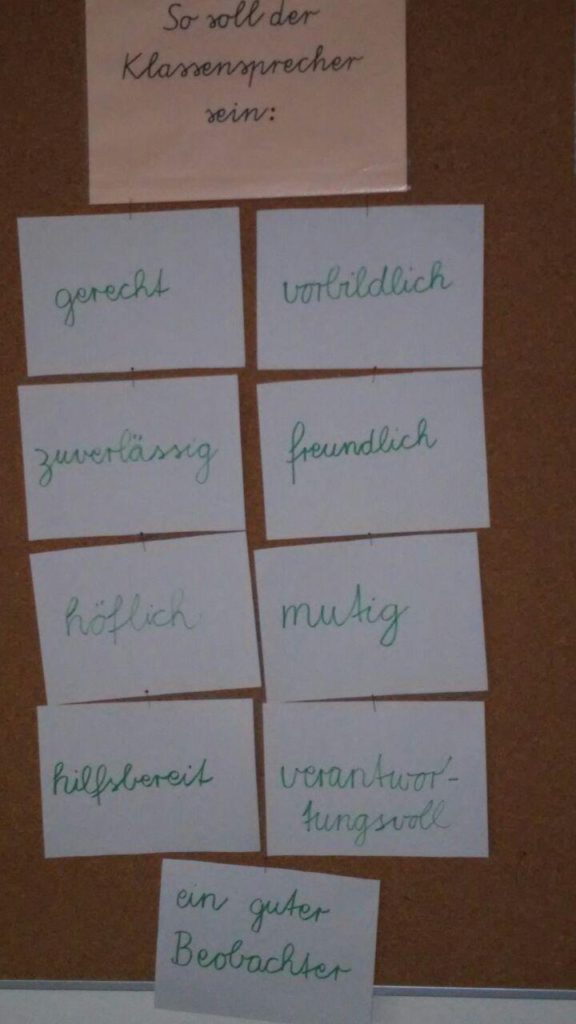 So soll der
Klassensprecher
sein:
gerecht
vorbildlich
zuverlässig
freundlich
höflich
mutig
hilfsbereit
verantwor-
tungsvoll
ein guter
Beobachter